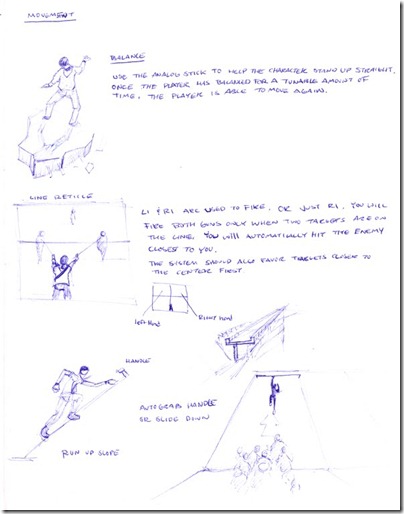 MOVEMENT
BALANCE
USE THE ANALOG STICK TO HELP THE CHARACTER STAND UP STRAIGHT.
ONCE THE PLAYER HAS BALANCED FOR A TUNABLE AMOUNT OF
TIME. THE PLAYER IS ABLE TO MOVE AGAIN.
LINE RETICLE
L1 & R1 ARE USED TO FIRE. OR JUST R1. YOU WILL
FIRE BOTH GUNS ONLY WHEN TWO TARGETS ARE ON
THE LINE. YOU WILL AUTOMATICALLY HIT THE ENEMY
CLOSES TO YOU.
THE SYSTEM SHOULD ALSO FAVOR TARGETS CLOSER TO
THE CENTER FIRST
left Hand
Right hand
HANDLE
AUTOGRAB HANDLE
OR SLIDE DOWN
RUN UP SLOPE